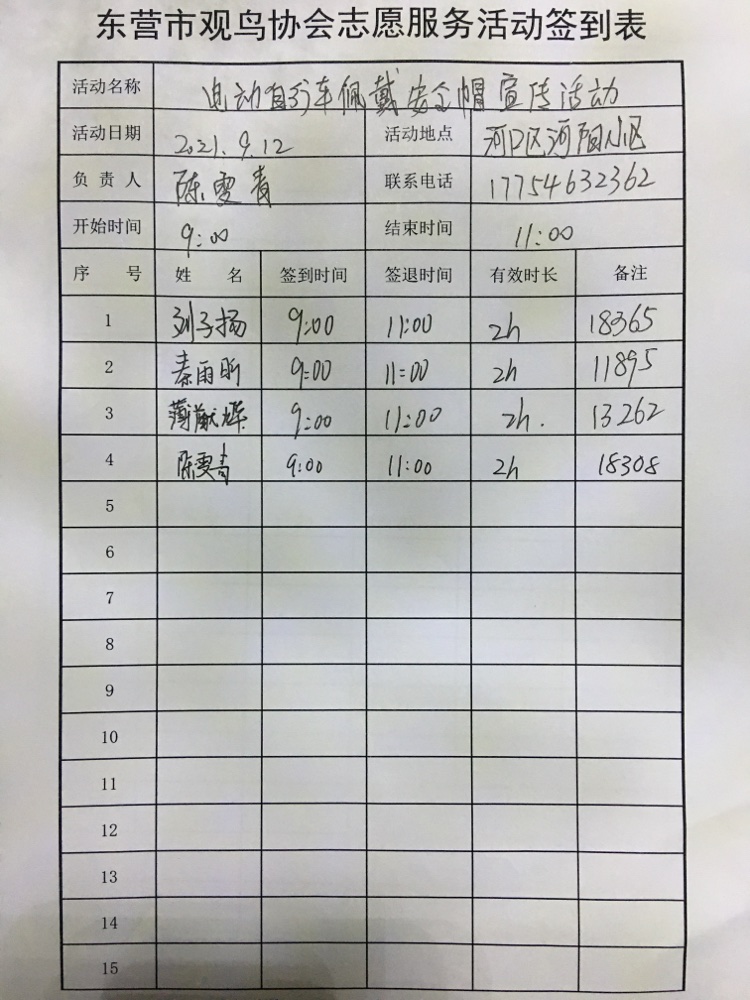 东营市观鸟协会志愿服务活动签到表
活动名称 电动自行车佩戴安全帽宣传活动
活动日期 2021.9.12 活动地点 河口区河阳小区
负责人 陈雯青 联系电话 17754632362
开始时间 9:00 结束时间 11:00
序号 姓名 签到时间 签退时间 有效时长 备注
1 刘子扬 9:00 11:00 2h 18365
2 秦雨昕 9:00 11:00 2h 11895
3 薄 9:00 11:00 2h. 13262
4 陈雯青 9:00 11:00 2h 18308
5
6
7
8
9
10
11
12
13
14
15